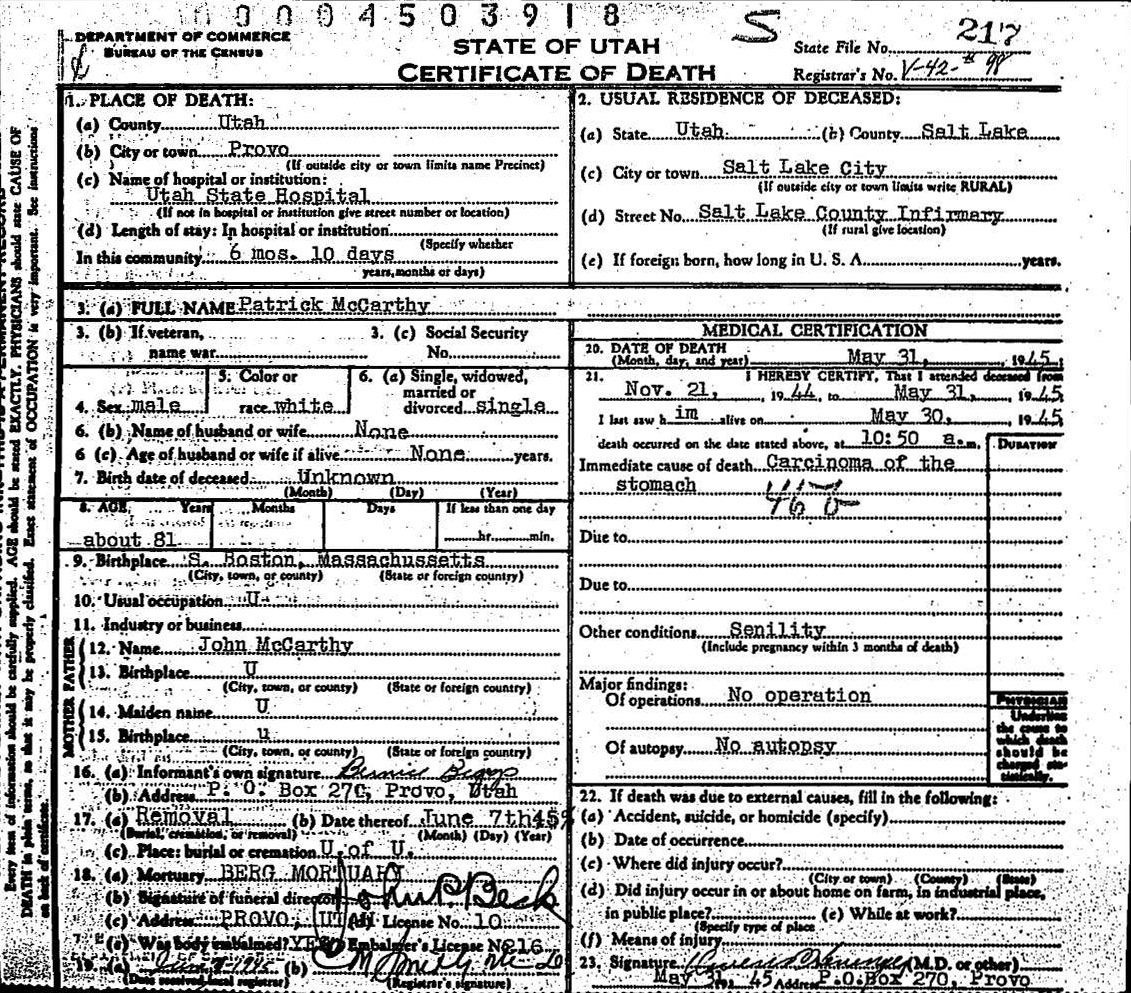 0 0 0 4 5 0 3 9 1 8
DEPARTMENT OF COMMERCE
BUREAU OF THE CENSUS
STATE OF UTAH
CERTIFICATE OF DEATH
S
State File No. 217
Registrar's No. V-42-# 98
1. PLACE OF DEATH:
(a) County Utah
(b) City or town Provo
(If outside city or town limits name Precinct)
(c) Name of hospital or institution:
Utah State Hospital
(If not in hospital or institution give street number or location)
(d) Length of stay: In hospital or institution
(Specify whether
In this community 6 mos. 10 days
years, months or days)
2. USUAL RESIDENCE OF DECEASED:
(a) State Utah (b) County Salt Lake
(c) City or town Salt Lake City
(If outside city or town limits write RURAL)
(d) Street No. Salt Lake County Infirmary
(If rural give location)
(e) If foreign born, how long in U. S. A. years.
3. (a) FULL NAME Patrick McCarthy
3. (b) If veteran, name war
3. (c) Social Security No.
4. Sex male
5. Color or race white
6. (a) Single, widowed, married or divorced single
6. (b) Name of husband or wife None
6 (c). Age of husband or wife if alive None years.
7. Birth date of deceased Unknown
(Month) (Day) (Year)
8. AGE Years Months Days If less than one day
about 81 hr. min.
9. Birthplace S. Boston, Massachussetts
(City, town, or county) (State or foreign country)
10. Usual occupation U
11. Industry or business
FATHER
12. Name John McCarthy
13. Birthplace U
(City, town, or county) (State or foreign country)
MOTHER
14. Maiden name U
15. Birthplace u
(City, town, or county) (State or foreign country)
16. (a) Informant's own signature Bernice
(b) Address P. O. Box 270, Provo, Utah
17. (a) Removal (b) Date thereof June 7th 45
(Burial, cremation, or removal) (Month) (Day) (Year)
(c) Place: burial or cremation U. of U.
18. (a) Mortuary BERG MORTUARY
(b) Signature of funeral director John P. Beck
(c) Address PROVO, UTAH (d) License No. 10
(e) Was body embalmed? YES Embalmer's License No 216
19. (a) (b)
(Date received local registrar) (Registrar's signature)
MEDICAL CERTIFICATION
20. DATE OF DEATH
(Month, day, and year) May 31, 1945
21. I HEREBY CERTIFY, That I attended deceased from
Nov. 21, 1944, to May 31, 1945
I last saw him alive on May 30, 1945
death occurred on the date stated above, at 10:50 a.m.
DURATION
Immediate cause of death Carcinoma of the
stomach
46 b
Due to
Due to
Other conditions Senility
(Include pregnancy within 3 months of death)
Major findings:
Of operations No operation
Of autopsy No autopsy
PHYSICIAN
Underline
the cause to
which death
should be
charged sta-
tistically.
22. If death was due to external causes, fill in the following:
(a) Accident, suicide, or homicide (specify)
(b) Date of occurrence
(c) Where did injury occur?
(City or town) (County) (State)
(d) Did injury occur in or about home on farm, in industrial place,
in public place? (e) While at work?
(Specify type of place
(f) Means of injury
23. Signature (M.D. or other)
May 31, 45 Address P.O.Box 270, Provo
Every item of information should be carefully supplied. AGE should be stated EXACTLY. PHYSICIANS should state CAUSE OF
DEATH in plain terms, so that it may be properly classified. Exact statement of OCCUPATION is very important. See instructions
on back of certificate.